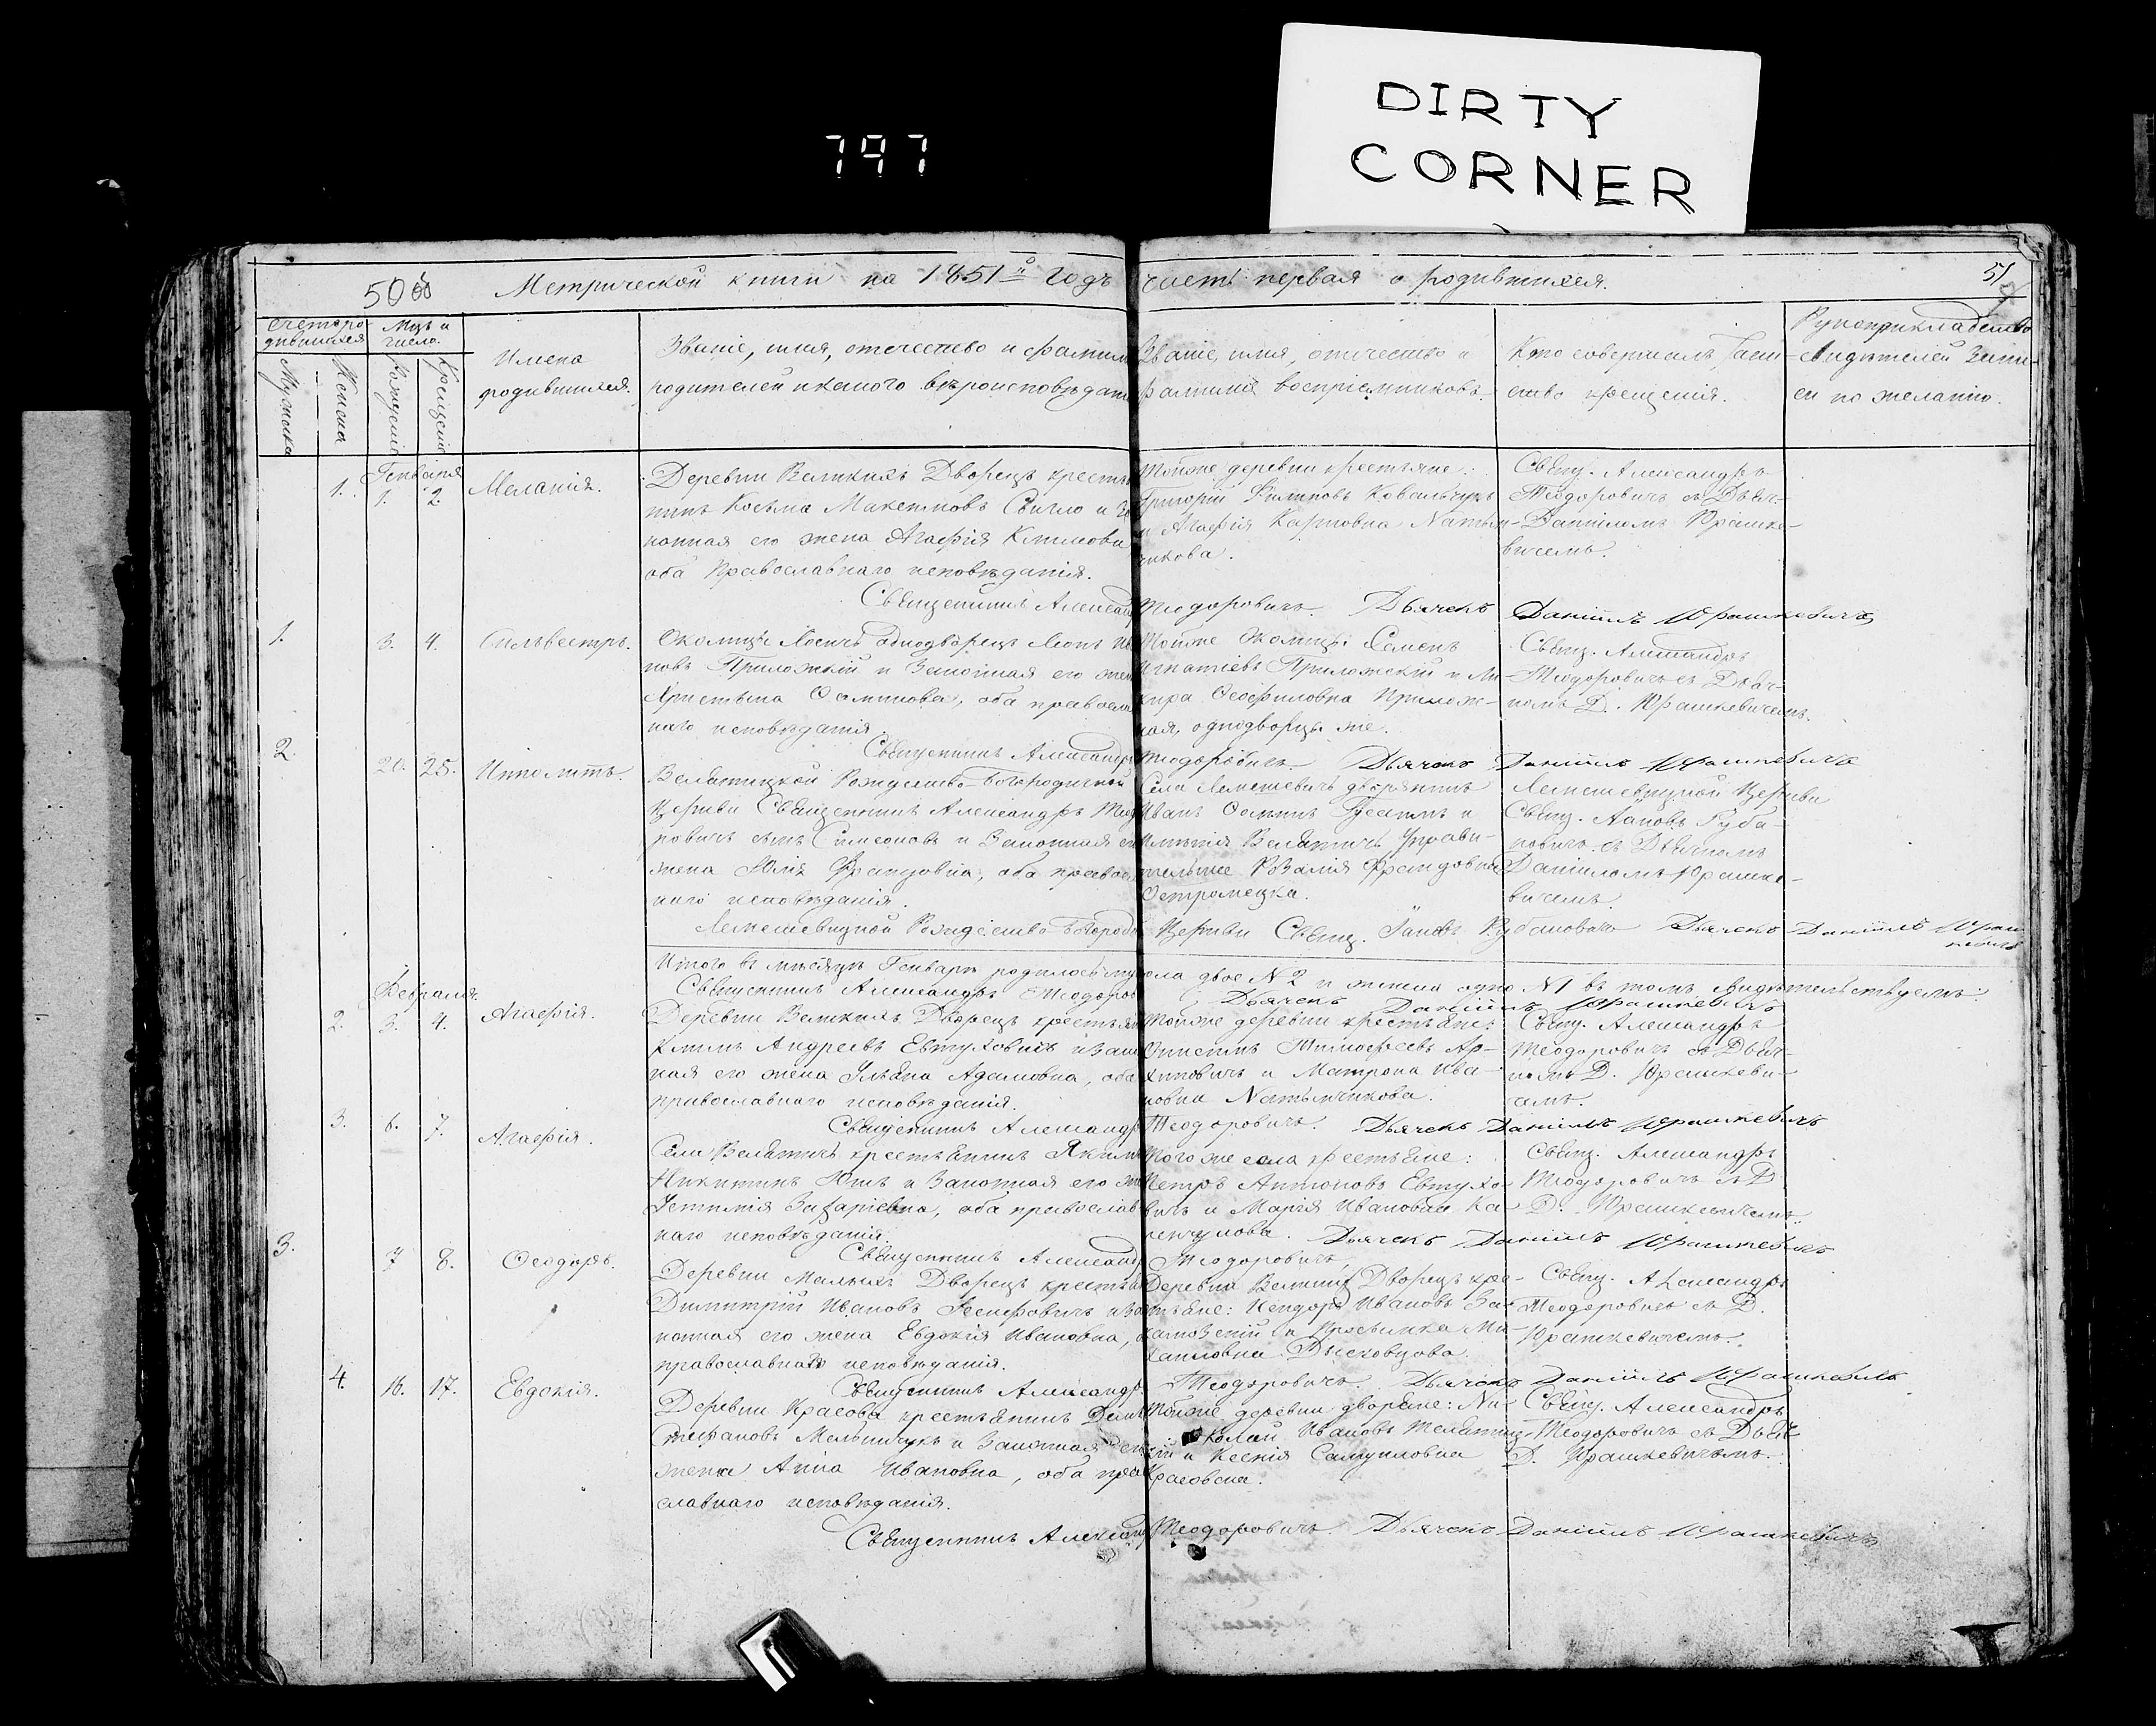 DIRTY
CORNER
797
50
Метрической книги на 1851й годъ часть первая о родившихся.
51
Счетъ родившихся
Мужеска
Женска
Мцъ и число.
Рожденія
Крещенія
Имена родившихся.
Званіе, имя, отечество и фамилія
родителей и какого вѣроисповѣданія
Званіе, имя, отечество и
фамилія воспріемниковъ
Кто совершалъ таин-
ство крещенія.
Рукоприкладство
свидѣтелей запи-
си по желанію.
Генваря
1. 1. 2. Меланія.
Деревни Великихъ Дворецъ крестья
нинъ Косьма Свигло и за
конная его жена Агафія Климова
оба православнаго исповѣданія.
Тойже деревни крестьяне:
Григорій Филиповъ Ковальчукъ
и Агафія Карповна
чикова.
Свящ. Александръ
Теодоровичъ съ Дьяч-
Даніиломъ Юрашке-
вичемъ.
Священникъ Александръ Теодоровичъ. Дьячекъ Даніилъ Юрашкевичъ
1. 3. 4. Сильвестръ.
Околицы однодворецъ Леонъ
новъ Приложкій и законная его жена
Христина Осипова, оба православ
наго исповѣданія
Тойже околицы Семенъ
Игнатіевъ Приложскій и
Ѳеофиловна Прилож-
кая, однодворцы же.
Свящ. Александръ
Теодоровичъ съ Дьяч-
комъ Д. Юрашкевичемъ.
Священникъ Александръ Теодоровичъ. Дьячекъ Даніилъ Юрашкевичъ
2. 20. 25. Ипполитъ.
Велятицкой Рождество-Богородичной
Церкви Священникъ Александръ Теодо
ровичъ сынъ Симеоновъ и законная его
жена Юлія Францовна, оба православ
наго исповѣданія.
Села Лемешевичъ дворянинъ
Иванъ Осипъ и
имѣнія Велятичъ управи-
тельше Розалія
Остромецка.
Лемешевицкой Церкви
Свящ. Іаковъ Руба-
новичъ съ Дьячкомъ
Даніиломъ Юрашке-
вичемъ
Лемешевицкой Рождество-Богород Церкви Свящ. Іаковъ Рубановичъ Дьячекъ Даніилъ Юраш
кевичъ
Итого въ мѣсяцѣ Генварѣ родилось муж пола двое N 2 и женска одно N 1 въ томъ свидѣтельствуемъ:
Священникъ Александръ Теодоров Дьячекъ Даніилъ Юрашкевичъ
Февраля.
2. 3. 4. Агафія.
Деревни Великихъ Дворецъ крестьян
Климъ Андреевъ Евтуховичъ и закон
ная его жена Ульяна Адамовна, оба
православнаго исповѣданія.
Тойже деревни крестьяне:
Тимофеевъ Ар-
хиповичъ и Матрона Ива-
новна
Свящ. Александръ
Теодоровичъ съ Дьяч-
комъ Д. Юрашкеви-
чемъ.
Священникъ Александръ Теодоровичъ. Дьячекъ Даніилъ Юрашкевичъ
3. 6. 7. Агафія.
Села Велятичъ крестьянинъ Якимъ
Никитинъ и законная его же
Устинія Захаріевна, оба православ
наго исповѣданія.
Того же села крестьяне:
Петръ Антоновъ Евтухо-
вичъ и Марія Ивановна
Свящ. Александръ
Теодоровичъ съ Д
Д. Юрашкевичемъ.
Священникъ Александръ Теодоровичъ. Дьячекъ Даніилъ Юрашкевичъ
3. 7 8. Ѳеодоръ.
Деревни Малыхъ Дворецъ крестьян
Димитрій Ивановъ и за
конная его жена Евдокія Ивановна,
православнаго исповѣданія.
Деревни Великихъ Дворецъ кре-
стьяне: Ивановъ
и Ми-
хаиловна
Свящ. Александръ
Теодоровичъ съ Д.
Юрашкевичемъ.
Священникъ Александръ Теодоровичъ. Дьячекъ Даніилъ Юрашкевичъ
4. 16. 17. Евдокія.
Деревни Красова крестьянинъ
Стефановъ Мельничукъ и законная его
жена Анна Ивановна, оба право
славнаго исповѣданія.
Тойже деревни дворяне: Ни-
колай Ивановъ
кій и Ксенія Самуиловна
Красовска.
Свящ. Александръ
Теодоровичъ съ Дьяч
Д. Юрашкевичемъ.
Священникъ Александръ Теодоровичъ. Дьячекъ Даніилъ Юрашкевичъ